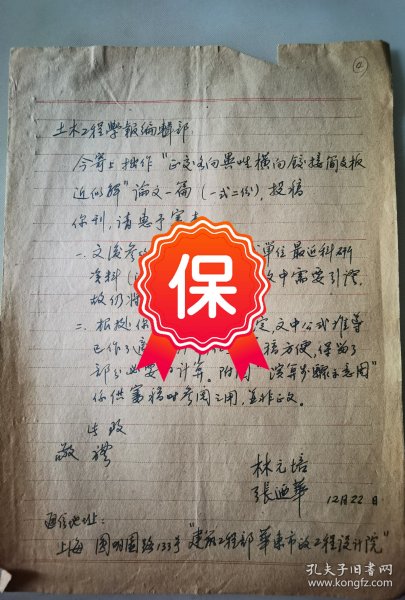 ④
土木工程學报编輯部
今寄上拙作"正交各向異性横向鉸接简支板
近似解"論文一篇(一式二份),投稿
你刊,請惠予
一.文後参 單位最近科研
资料( 文中需要引
故仍
二.根据你 定文中公式推导
已作了 稿方便,保留了
部分 計算。附 "演算步驟示意图"
仅供審稿时参阅之用,並非正文。
此致
敬禮
林元培
張迺華
12月22日
通信地址:
上海 圆明园路133号"建筑工程部華東市政工程設計院"
保
孔夫子旧書网
www.kongfz.com